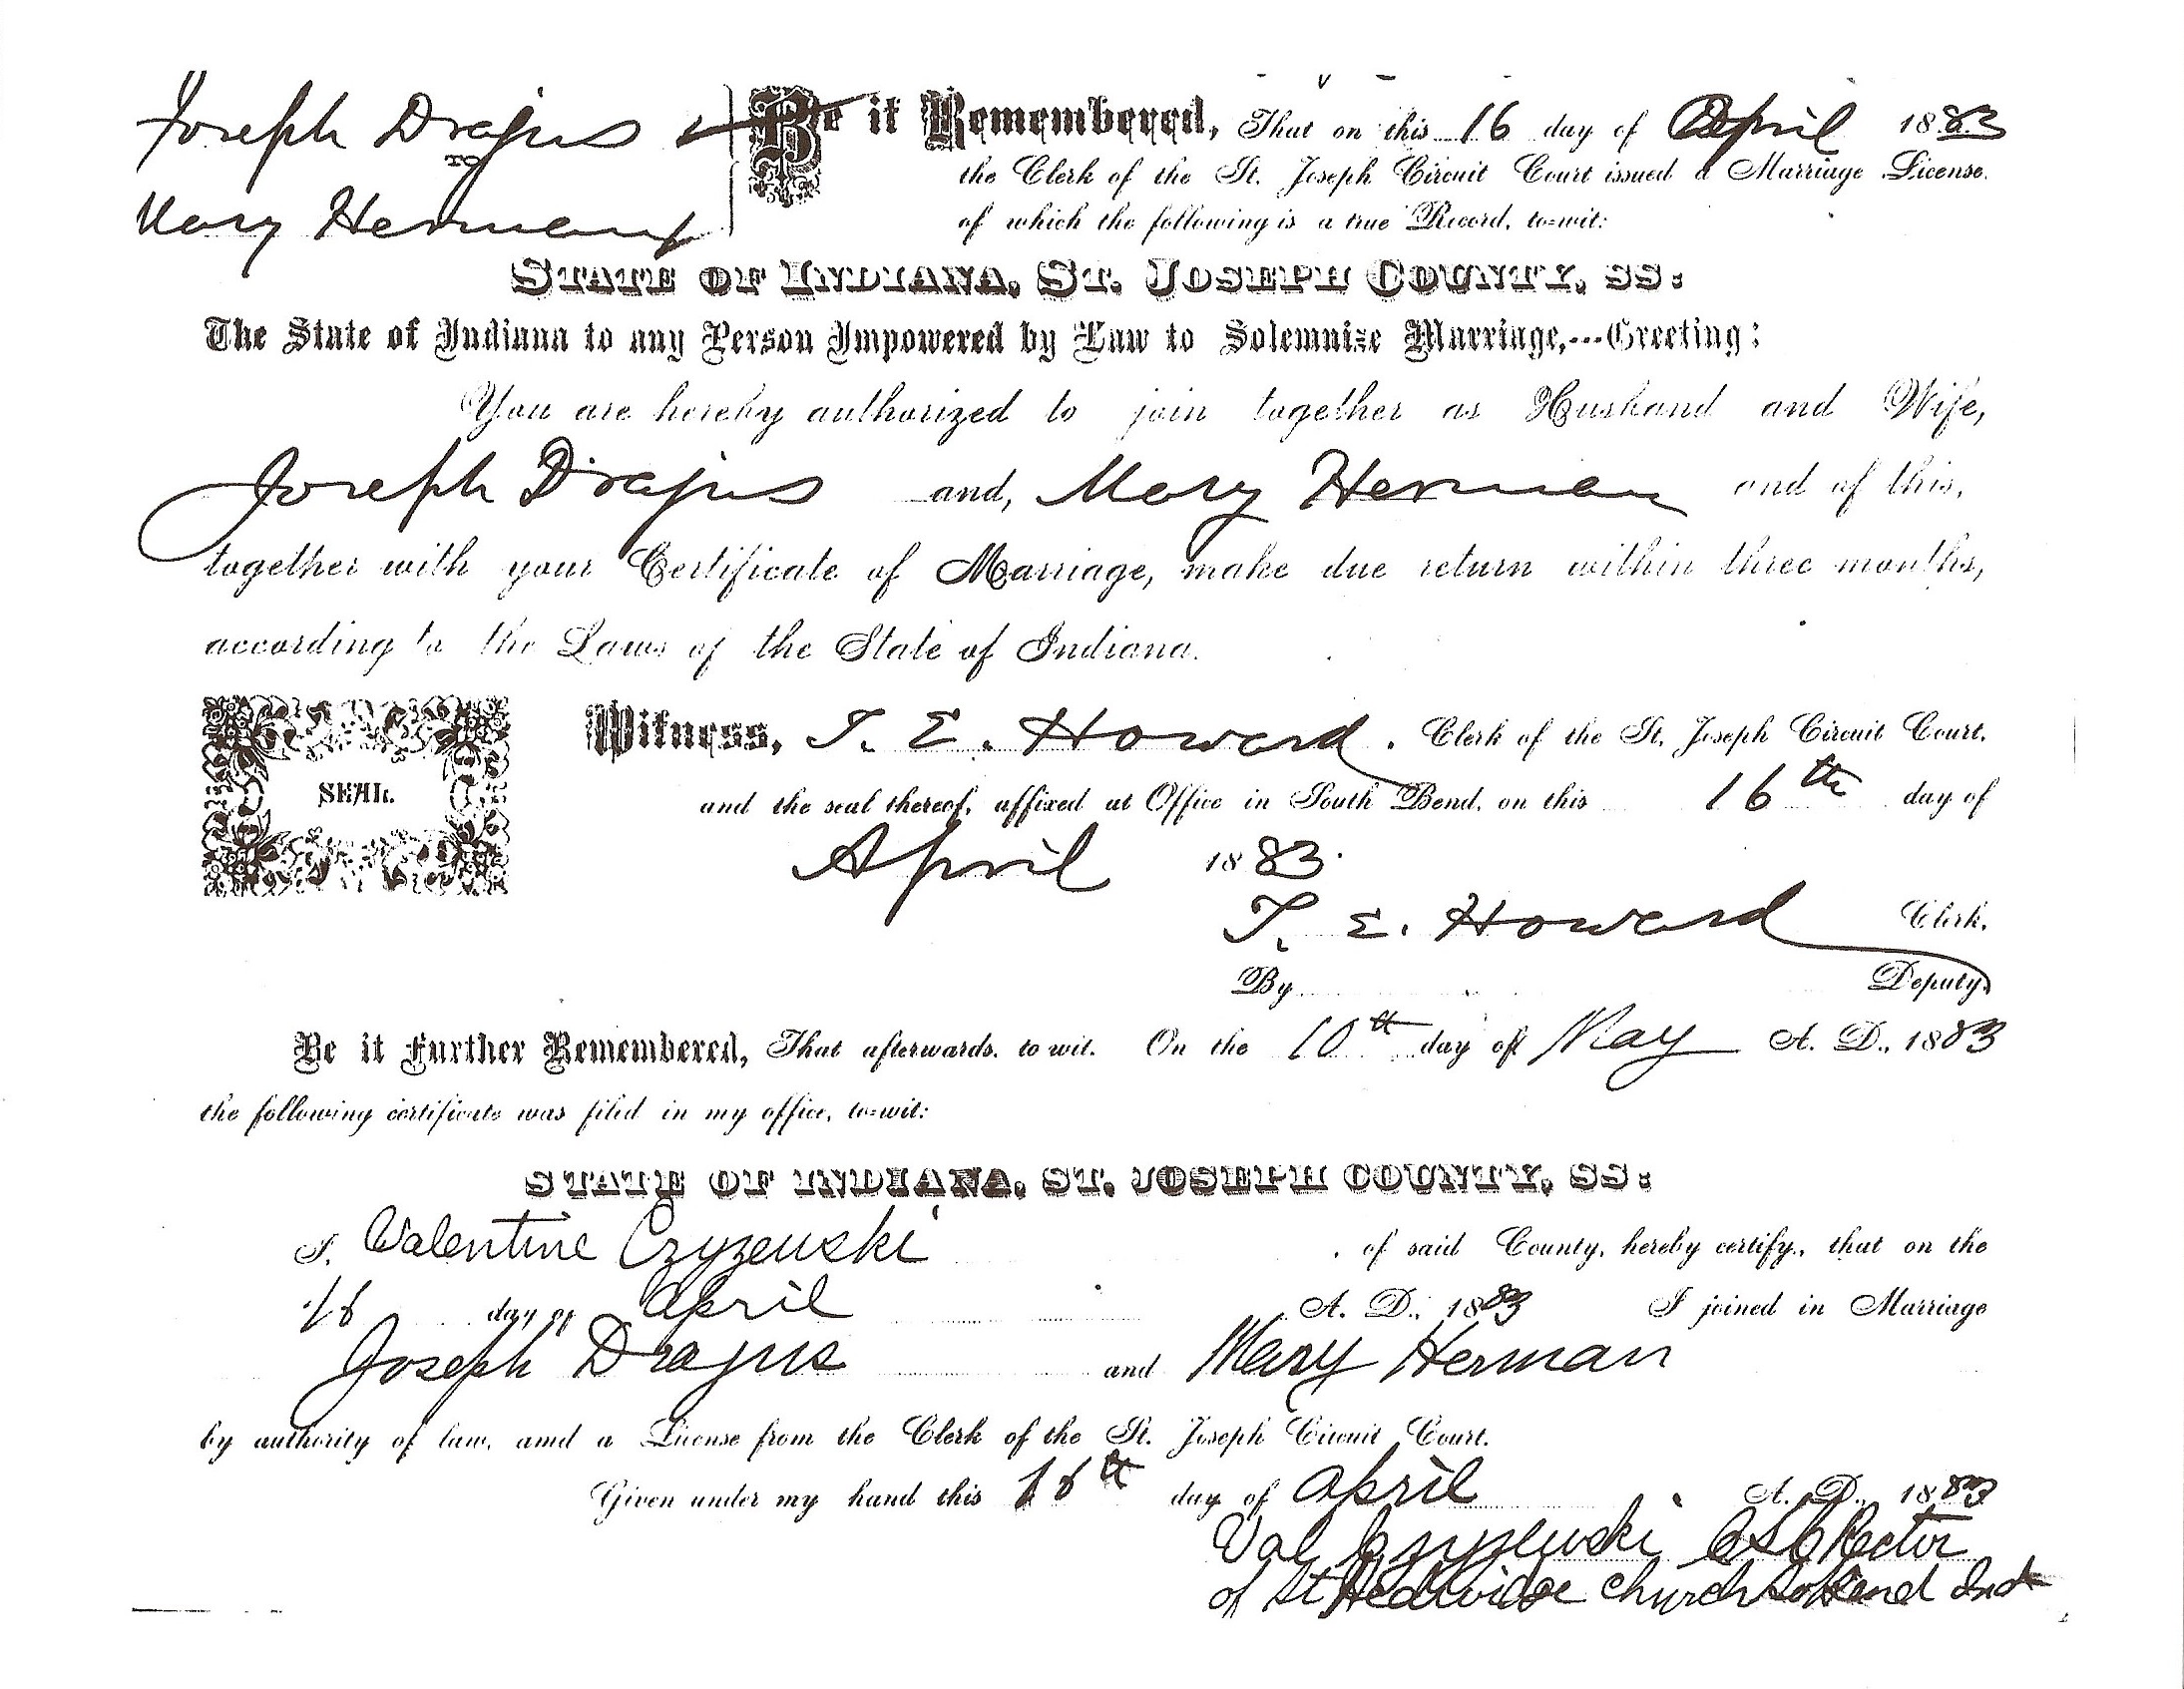 Joseph Drajus
TO
Mary Herman
Be it Remembered, That on this 16 day of April 1883
the Clerk of the St. Joseph Circuit Court issued a Marriage License.
of which the following is a true Record, to=wit:
STATE OF INDIANA, ST. JOSEPH COUNTY, SS:
The State of Indiana to any Person Impowered by Law to Solemnize Marriage,---Greeting:
You are hereby authorized to join together as Husband and Wife,
Joseph Drajus and, Mary Herman and of this,
together with your Certificate of Marriage, make due return within three months,
according to the Laws of the State of Indiana.
SEAL.
Witness, T. E. Howard. Clerk of the St. Joseph Circuit Court.
and the seal thereof, affixed at Office in South Bend, on this 16th day of
April 1883.
T. E. Howard Clerk.
By Deputy
Be it Further Remembered, That afterwards. to wit. On the 10th day of May A. D., 1883
the following certificate was filed in my office, to=wit:
STATE OF INDIANA, ST. JOSEPH COUNTY, SS:
I. Valentine Czyzewski . of said County, hereby certify, that on the
16 day of April A. D., 1883 I joined in Marriage
Joseph Drajus and Mary Herman
by authority of law, amd a License from the Clerk of the St. Joseph Circuit Court.
Given under my hand this 16th day of April A. D., 1883
Val Czyzewski CSC Rector
of St Hedwidge Church So Bend Ind